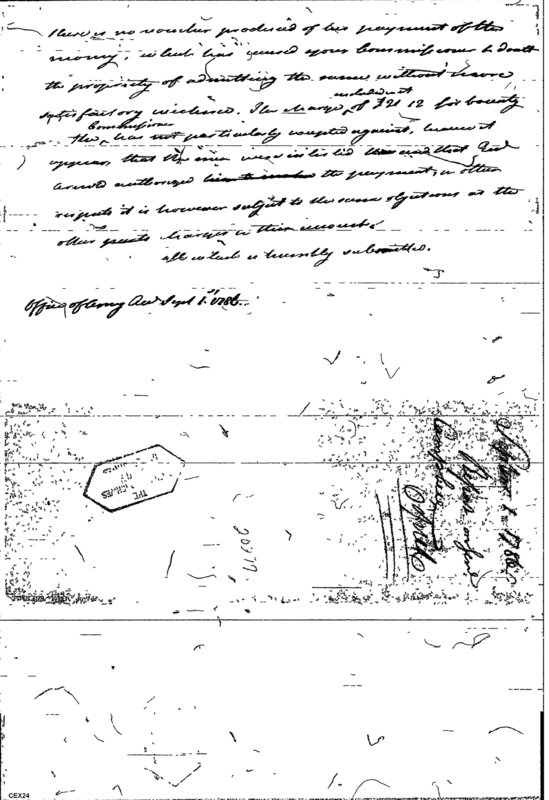 there is no voucher produced of his payment of the
money, which has caused your Commissioner to doubt
the propriety of admitting the same without more
satisfactory evidence. The charge included in it of £21 12 for bounty
the Commissioner has not particularly excepted against, because it
appears that the men were inlisted and that
Arnold authorized the payment, in other
respects it is however subject to the same objections as the
other charges in their accounts
all which is humbly submitted.
Office of Army Accts Sept 1st 1786.
September 1 1786
Report
THE
20379
CEX24